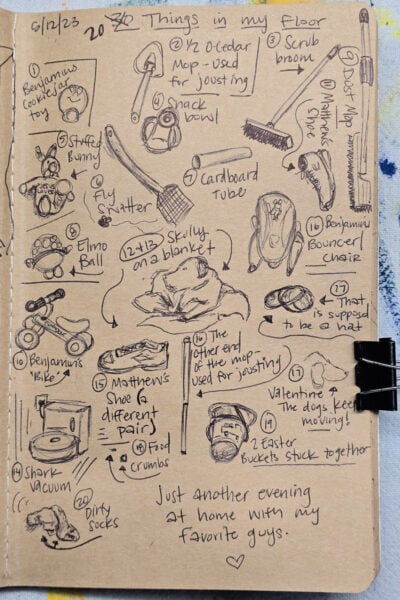 5/12/23
20 Things in my Floor
① Benjamin's
Cookie jar
toy
② 1/2 O-Cedar
Mop - used
for jousting
③ Scrub
broom
④ Snack
bowl
⑤ Stuffed
Bunny
⑥ Fly
Swatter
⑦ Cardboard
Tube
⑧ Elmo
Ball
⑨ Dust Mop
⑩ Benjamin's
"Bike"
⑪ Matthew's
Shoe
12+13 Skully
on a blanket
⑭ Shark
Vacuum
⑮ Matthew's
Shoe (a
different
pair)
⑯ Benjamin's
Bouncer/
chair
⑯ The
other end
of the mop -
used for jousting
⑰ That
is supposed
to be a hat
⑰ Valentine
The dogs keep
moving!
⑱ Food
crumbs
⑲ 2 Easter
Buckets stuck together
⑳ Dirty
Socks
Just another evening
at home with my
favorite guys.
♡